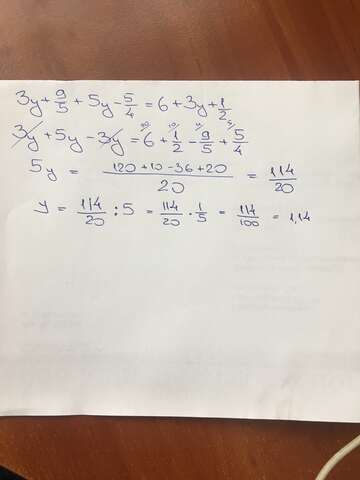 3y + 9/5 + 5y - 5/4 = 6 + 3y + 1/2
3y + 5y - 3y = 6 + 1/2 - 9/5 + 5/4
5y = (120 + 10 - 36 + 20)/20 = 114/20
y = 114/20 : 5 = 114/20 · 1/5 = 114/100 = 1,14